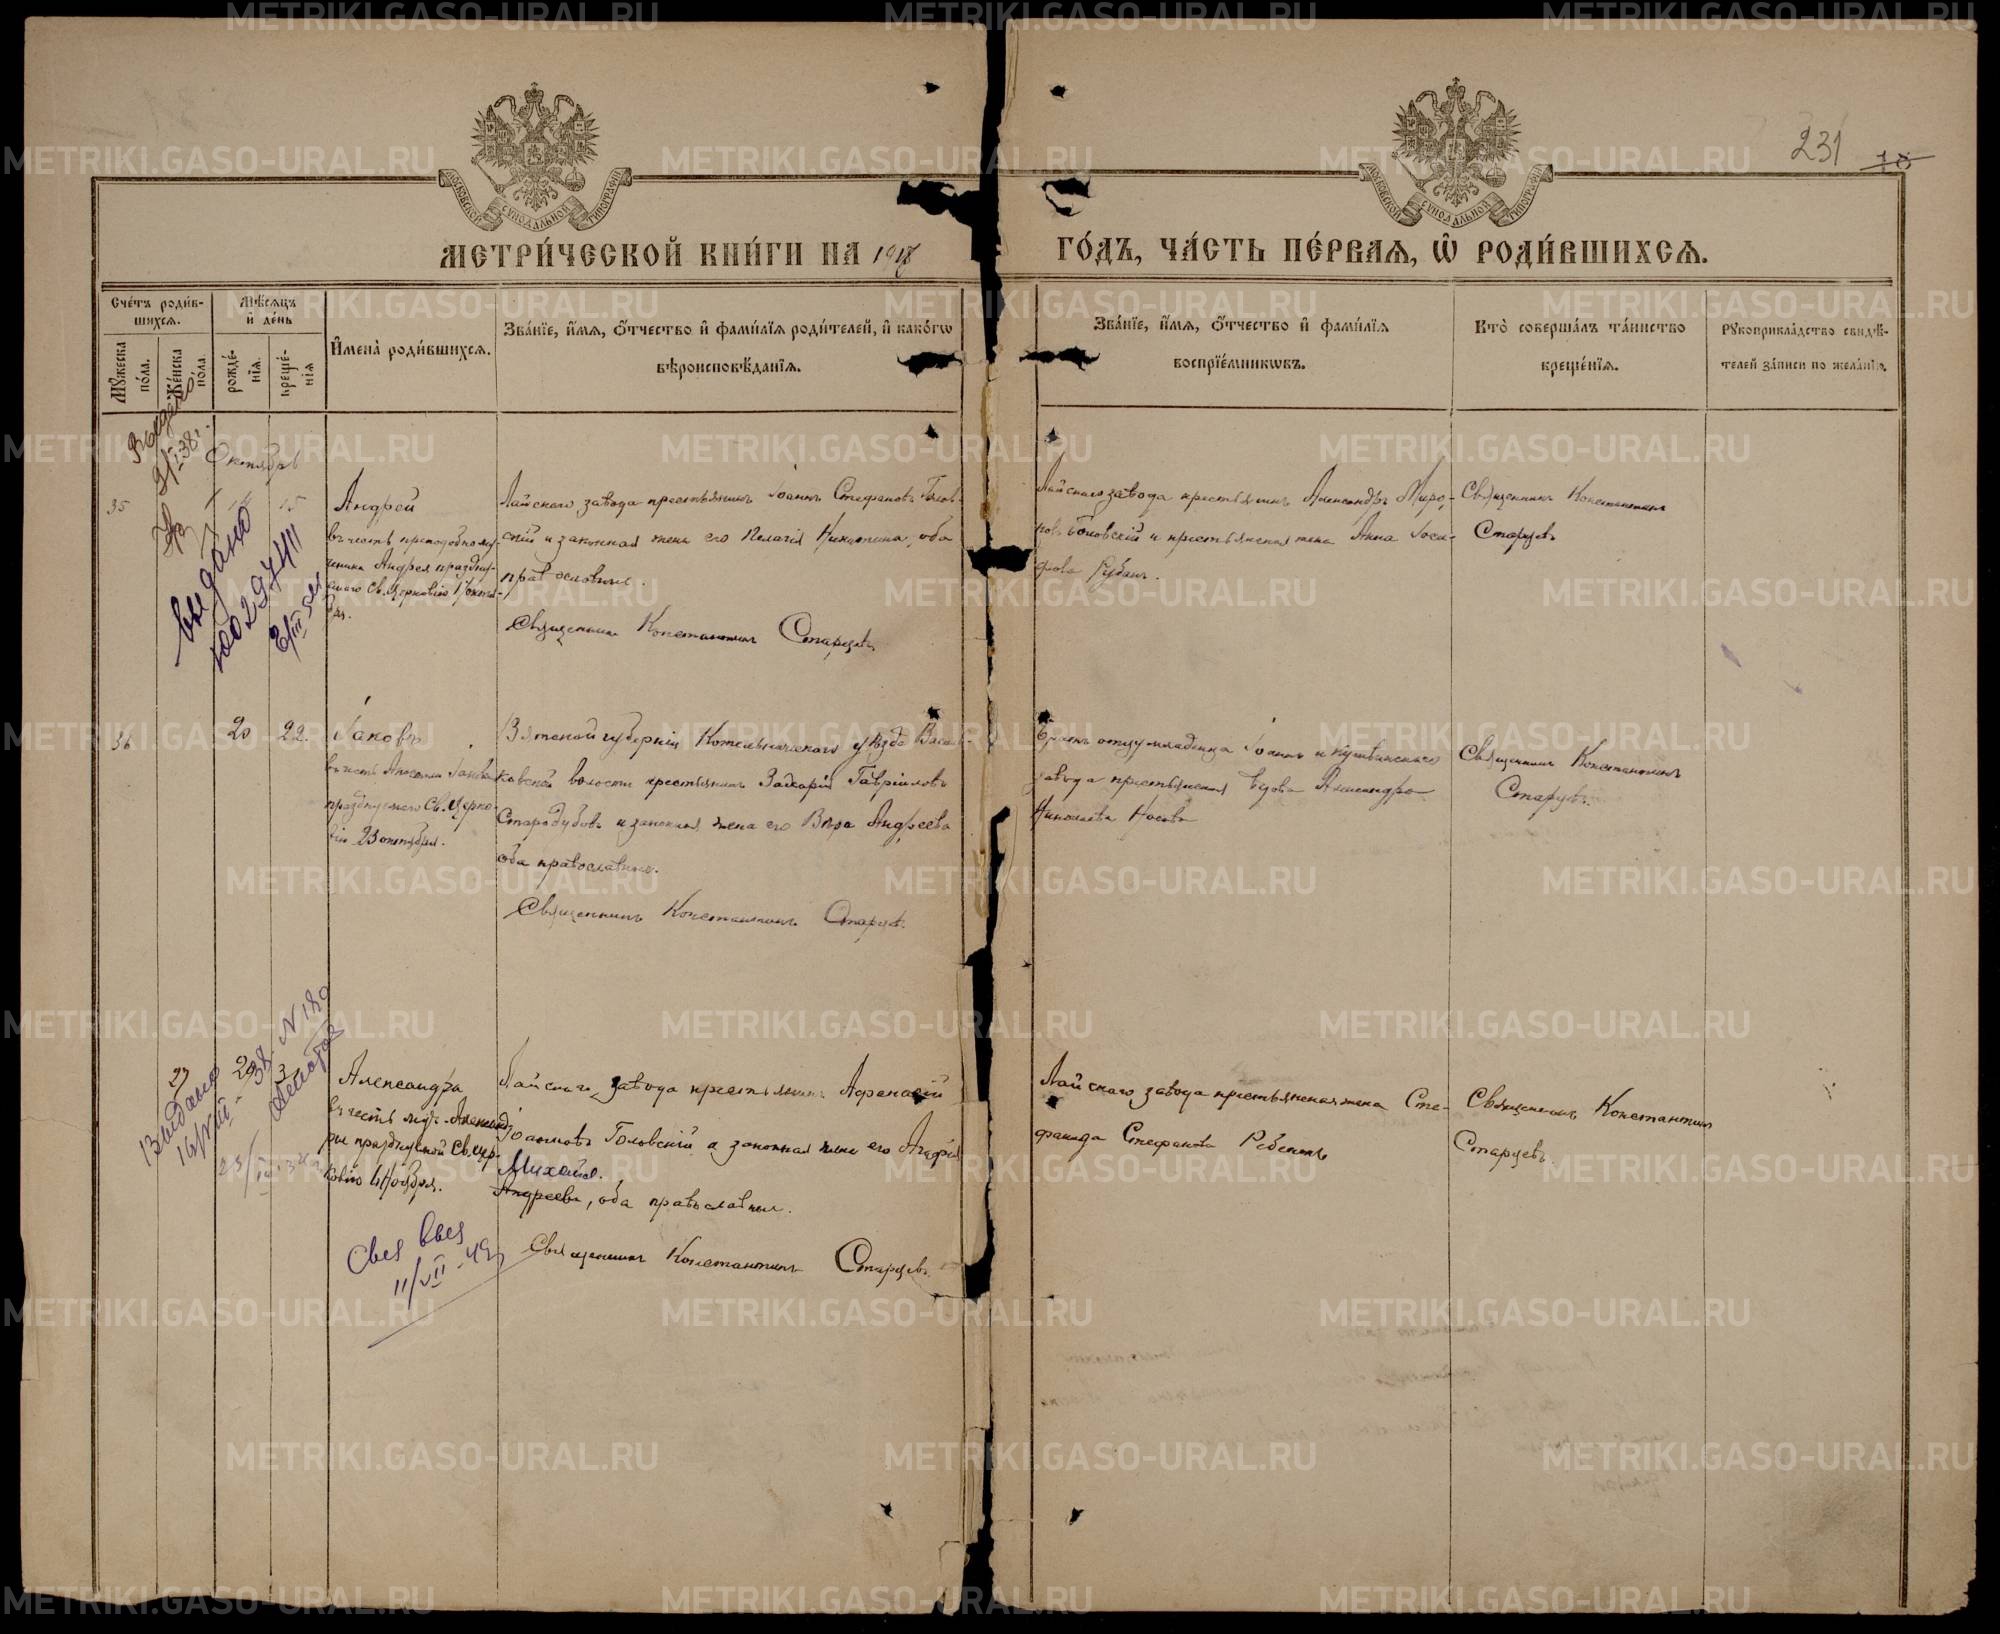 231 18
МОСКОВСКОЙ СѴНОДАЛЬНОЙ ТИПОГРАФІИ
МОСКОВСКОЙ СѴНОДАЛЬНОЙ ТИПОГРАФІИ
МЕТРИ́ЧЕСКОЙ КНИ́ГИ НА 1918 ГО́ДЪ, ЧА́СТЬ ПЕ́РВАЯ, Ѡ РОДИ́ВШИХСЯ.
Сче́тъ роди́вшихся.
Мꙋ́жеска по́ла.
Же́нска по́ла.
Мѣ́сяцъ и де́нь
рожде́нія.
креще́нія
Имена̀ роди́вшихся.
Зва́ніе, и́мя, о́тчество и фами́лія роди́телей, и како́гѡ
вѣроисповѣ́данія.
Зва́ніе, и́мя, о́тчество и фами́лія
воспріе́мникѡвъ.
Кто̀ соверша́лъ та́инство
креще́нія.
Рꙋкоприкла́дство свидѣ́-
телей за́писи по жела́нію.
Октябрь
35
14 15
Андрей
въ честь преподобному-
ченика Андрея праздну-
емаго Св. Церковію 17 октяб-
ря.
Лайскаго завода крестьянинъ Іоаннъ Стефановъ Голов-
скій и законная жена его Пелагія Никитина, оба
православные.
Священникъ Константинъ Старцевъ
Лайскаго завода крестьянинъ Александръ Миро-
новъ Головскій и крестьянская жена Анна Іоси-
фова
Священникъ Константинъ
Старцевъ
Выдано
выдано
Ю0297411
36
20 22.
Іаковъ
въ честь Апостола Іакова
празднуемаго Св. Церко-
вію 23 октября.
Вятской губерніи Котельническаго уѣзда Васи-
ковской волости крестьянинъ Захарій Гавріиловъ
Стародубовъ и законная жена его Вѣра Андреева
оба православные.
Священникъ Константинъ Старцевъ.
Братъ отцу младенца Іоаннъ и Кушвинскаго
завода крестьянская вдова Александра
Николаева Носова
Священникъ Константинъ
Старцевъ.
27
29
Александра
въ честь муч. Александ-
ры празднуемой Св. Цер-
ковію 6 Ноября.
Лайскаго завода крестьянинъ Афанасій
Іоанновъ Головскій и законная жена его Агафія
Михайл.
Андреева, оба православные.
Священникъ Константинъ Старцевъ.
Лайскаго завода крестьянская жена Сте-
фанида Стефанова
Священникъ Константинъ
Старцевъ.
Выдано
38. N 180
11/VII-49
METRIKI.GASO-URAL.RU